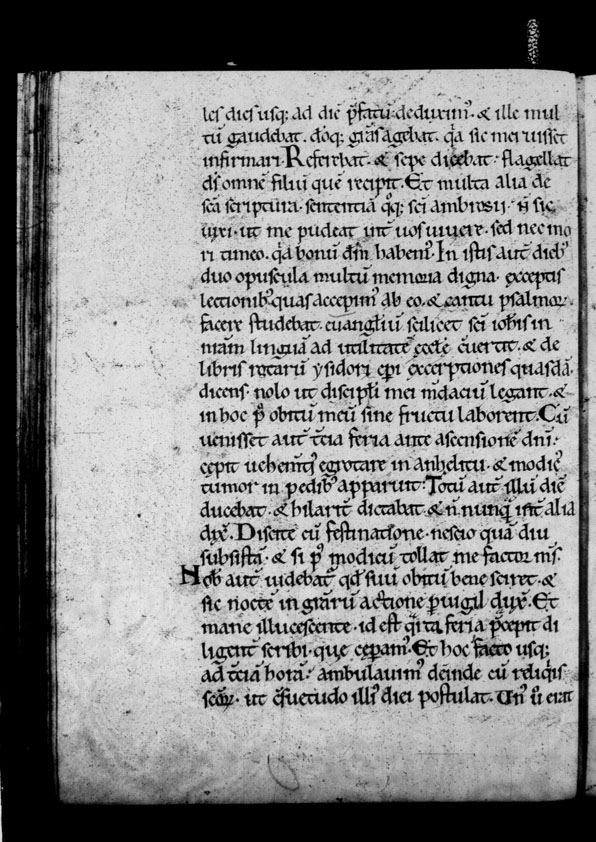 les dies usq; ad diē p̄fatū deduxim᷒. & ille mul
tū gaudebat. dōq; gr̄as agebat. q̓a sic meruisset
infirmari. Referebat. & sepe dicebat. flagellat
dš omnē filiū quē recipit. Et multa alia de
scā scriptura. sententiā q̊q; sci ambrosii. n̄ sic
uixi. ut me pudeat int̄ uos uiuere. sed nec mo
ri timeo. q̓a bonū dn̄m habem᷒. In istis aut̄ dieb᷒
duo opuscula multū memoria digna. exceptis
lectionib᷒ quas accepim᷒ ab eo. & cantu psalmoꝝ.
facere studebat. euangl̄iū scilicet sci ioh̄is in
nr̄am linguā ad utilitatē eccl̄e c̄uertit. & de
libris rotarū ysidori ep̄i excerptiones quasdā.
dicens. nolo ut discipl̄i mei m̄daciū legant. &
in hoc p᷒ obitū meū sine fructu laborent. Cū
uenisset aut̄ t̄cia feria ante ascensionē dn̄i.
cepit uehemt̄i᷒ egrotare in anhelitu. & modic᷒
tumor in pedib᷒ apparuit. Totū aut̄ illū diē
ducebat. & hilarit̄ dictabat. & n̄ nunq̄ int̄ alia
dix̄. Discite cū festinatione. nescio quādiu
subsistā. & si p᷒ modicū tollat me factor m̄s.
Nob̄ aut̄ uidebat᷑ qd̄ suū obitū bene sciret. &
sic noctē in gr̄arū actione p̱uigil dux̄. Et
mane illucescente. id est q̓rta feria p̄cepit di
ligent̄ scribi. que cep̱am᷒. Et hoc facto usq;
ad t̄ciā horā. ambulauim᷒ deinde cū reliq̓is
sc̄oꝝ. ut c̄suetudo illi᷒ diei postulat. Un᷒ u̓ erat